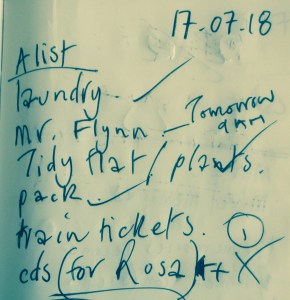 17.07.18
A list
laundry.
Mr. Flynn - Tomorrow
Tidy flat / plants.
pack
train tickets. 1
cds (for Rosa) X